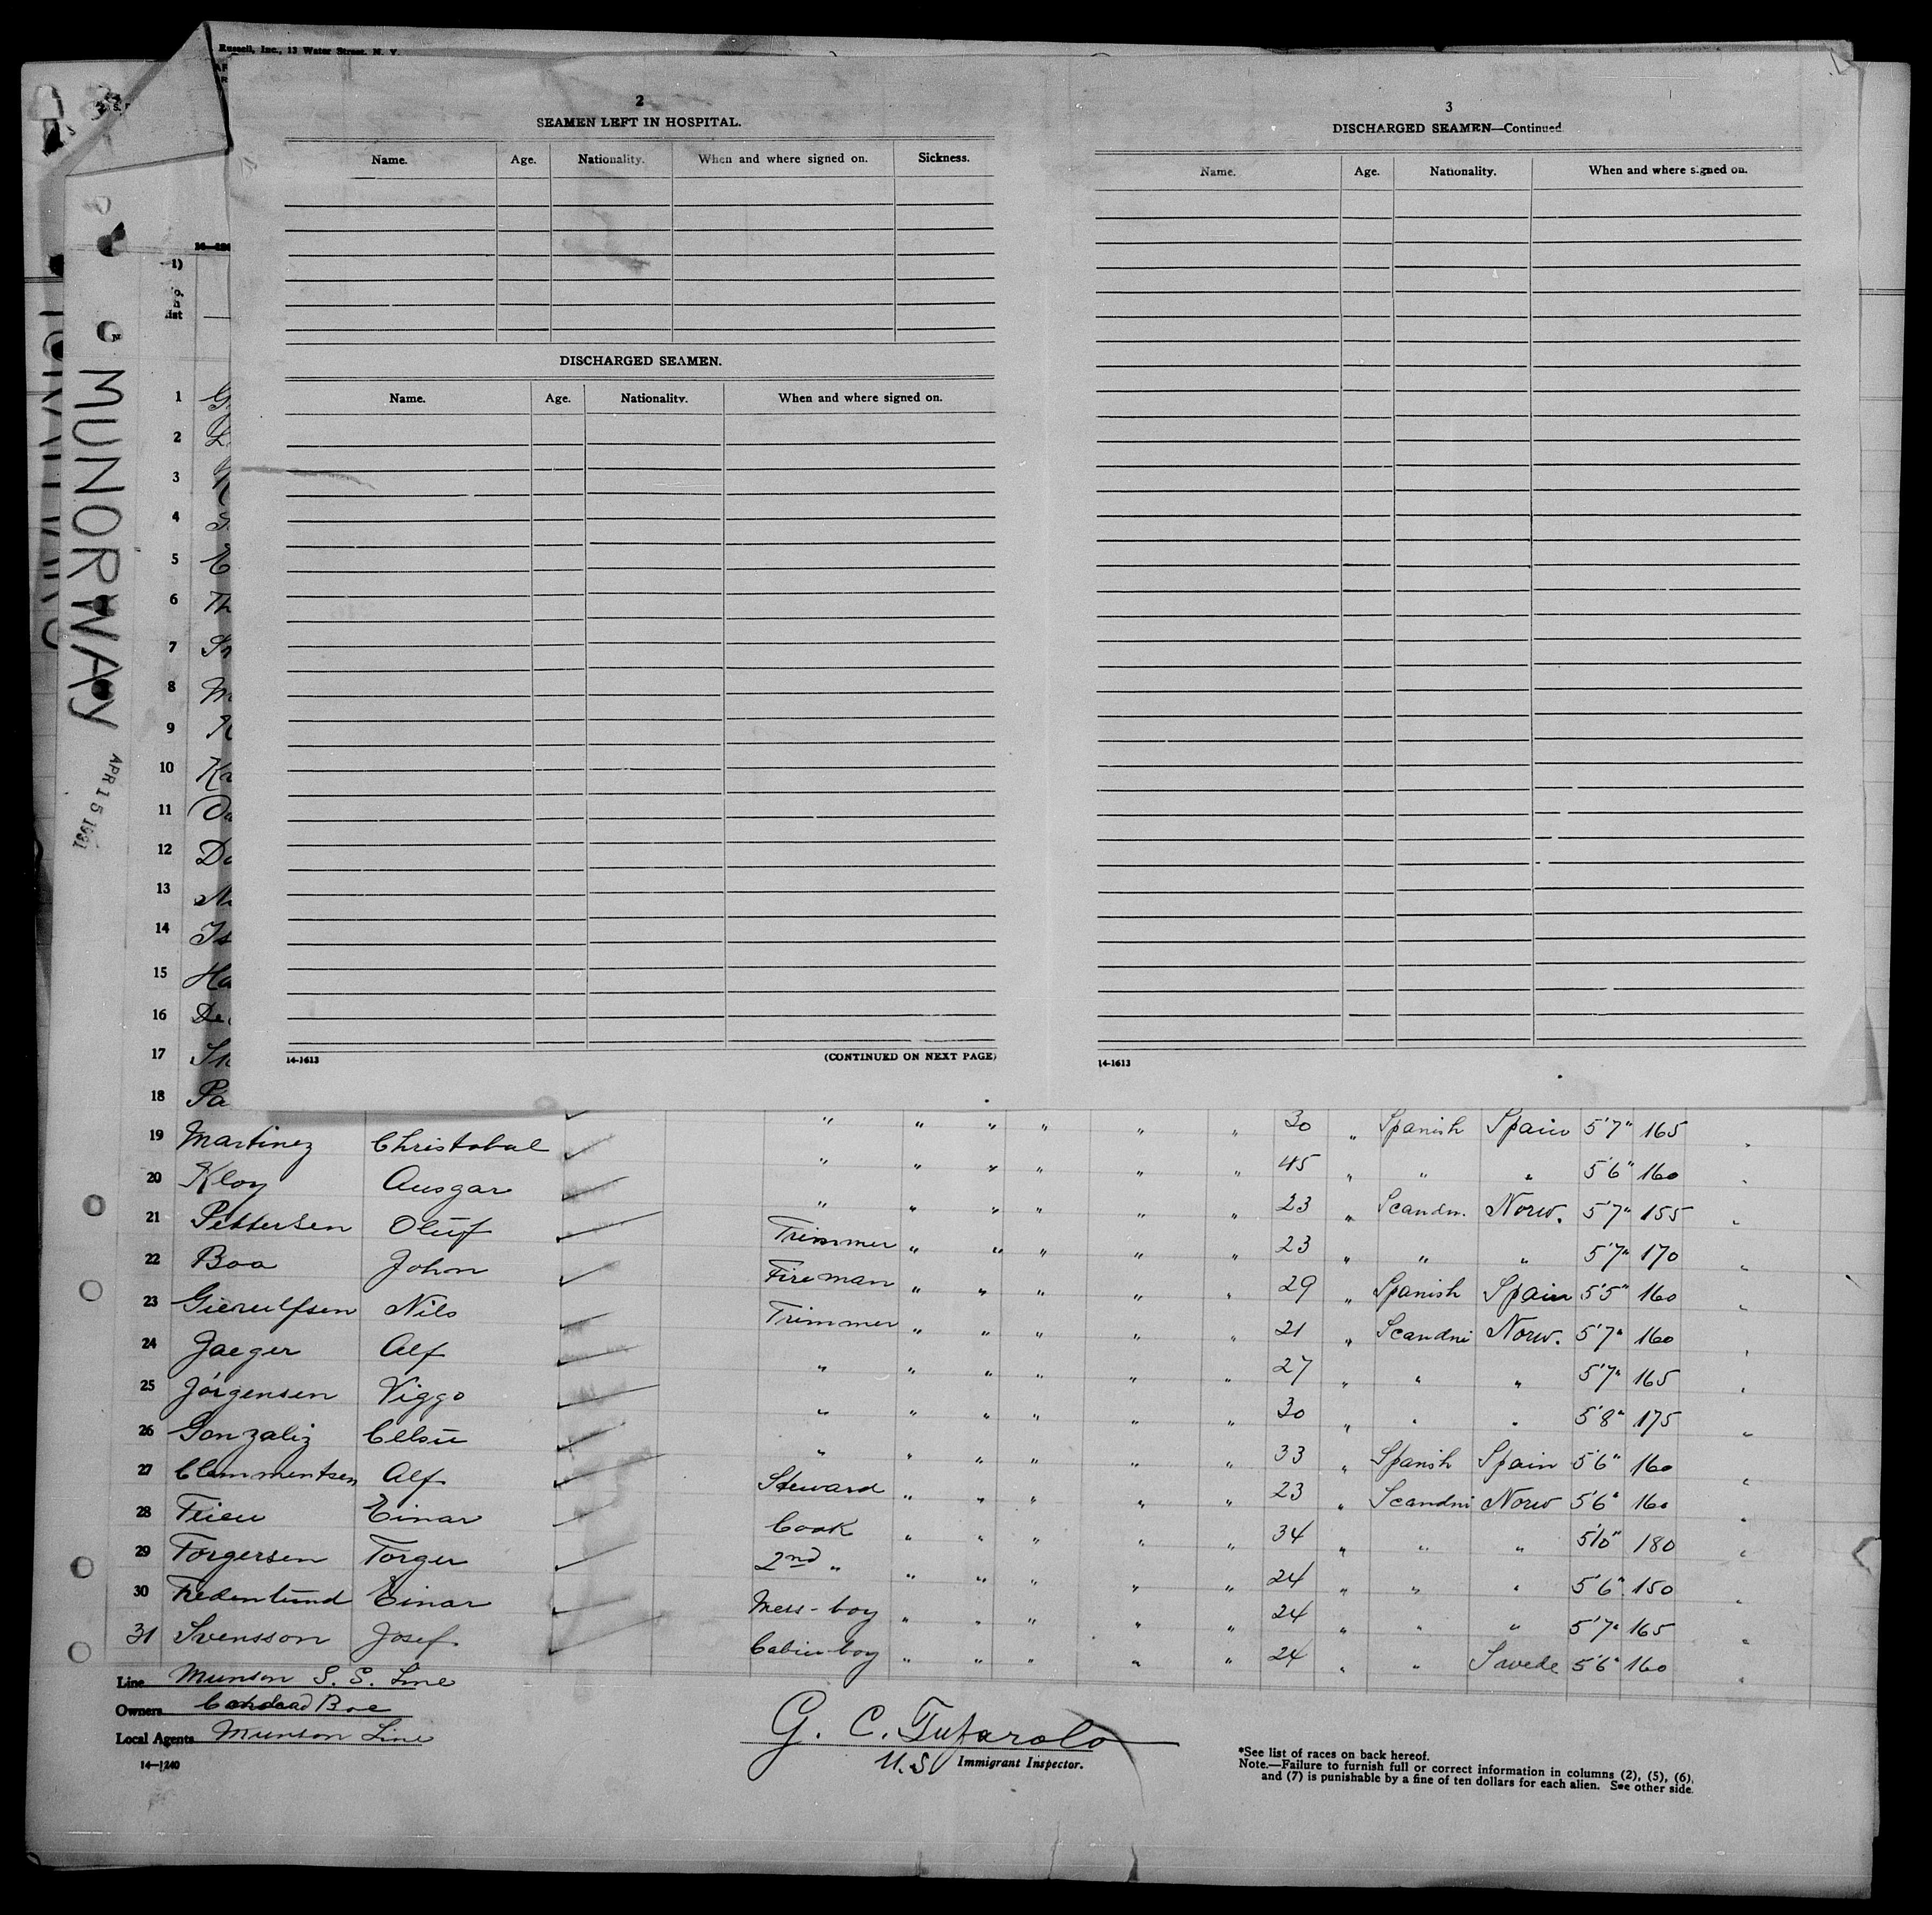 Russell, Inc., 13 Water Street, N. Y.
2
SEAMEN LEFT IN HOSPITAL.
Name. Age. Nationality. When and where signed on. Sickness.
DISCHARGED SEAMEN.
Name. Age. Nationality. When and where signed on.
14-1613
(CONTINUED ON NEXT PAGE)
3
DISCHARGED SEAMEN—Continued
Name. Age. Nationality. When and where signed on.
14-1613
MUNORWAY
APR 15 1931
1
2
3
4
5
6
7
8
9
10
11
12
13
14
15
16
17
18 Pa " " " " " " 30 " Spanish Spain 5'7" 165 "
19 Martinez Christobal " " " " " " 45 " " " 5'6" 160 "
20 Kloy Ausgar " " " " " " 23 " Scandn. Norw. 5'7" 155 "
21 Pettersen Oluf Trimmer " " " " " 23 " " " 5'7" 170 "
22 Boo John Fireman " " " " " 29 " Spanish Spain 5'5" 160 "
23 Gierulfsen Nils Trimmer " " " " " 21 " Scandni Norw. 5'7" 160 "
24 Jaeger Alf " " " " " " 27 " " " 5'7" 165 "
25 Jörgensen Viggo " " " " " " 30 " " " 5'8" 175 "
26 Gonzaliz Celsu " " " " " " 33 " Spanish Spain 5'6" 160 "
27 Clemmentsen Alf Steward " " " " " 23 " Scandni Norw 5'6" 160 "
28 Einar Cook " " " " " 34 " " " 5'10" 180 "
29 Torgersen Torger 2nd " " " " " " 24 " " " 5'6" 150 "
30 Fredenlund Einar Mess-boy " " " " " 24 " " " 5'7" 165 "
31 Svensson Josef Cabin-boy " " " " " 24 " " Swede 5'6" 160 "
Line Munson S. S. Line
Owners Boe
Local Agents Munson Line
14—1240
G. C. Tufarolo
U.S. Immigrant Inspector.
*See list of races on back hereof.
Note.—Failure to furnish full or correct information in columns (2), (5), (6),
and (7) is punishable by a fine of ten dollars for each alien. See other side.